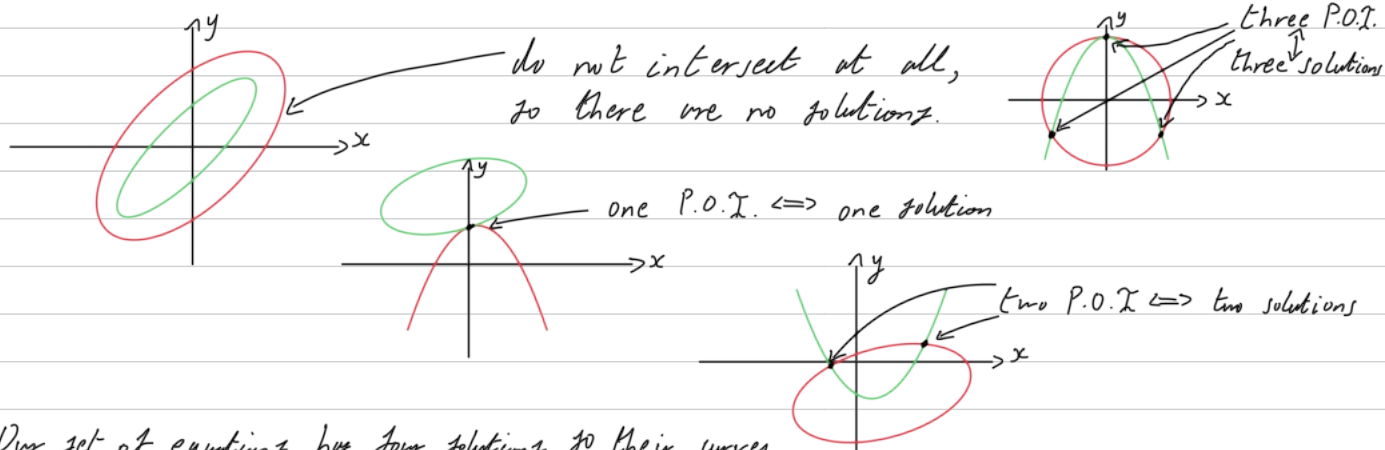 y
do not intersect at all,
so there are no solutions.
x
y
three P.O.I.
three solutions
x
y
one P.O.I. <=> one solution
x
y
two P.O.I <=> two solutions
x
Our set of equations has four solutions so their curves